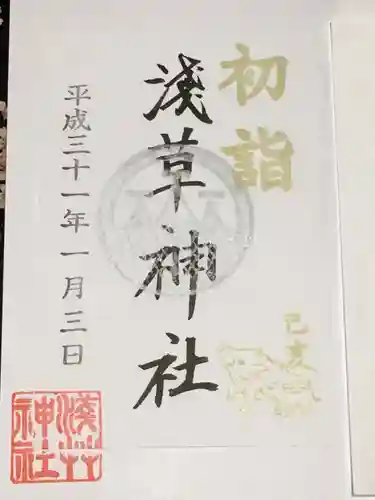 初詣
己亥
淺草神社
平成三十一年一月三日
淺草神社